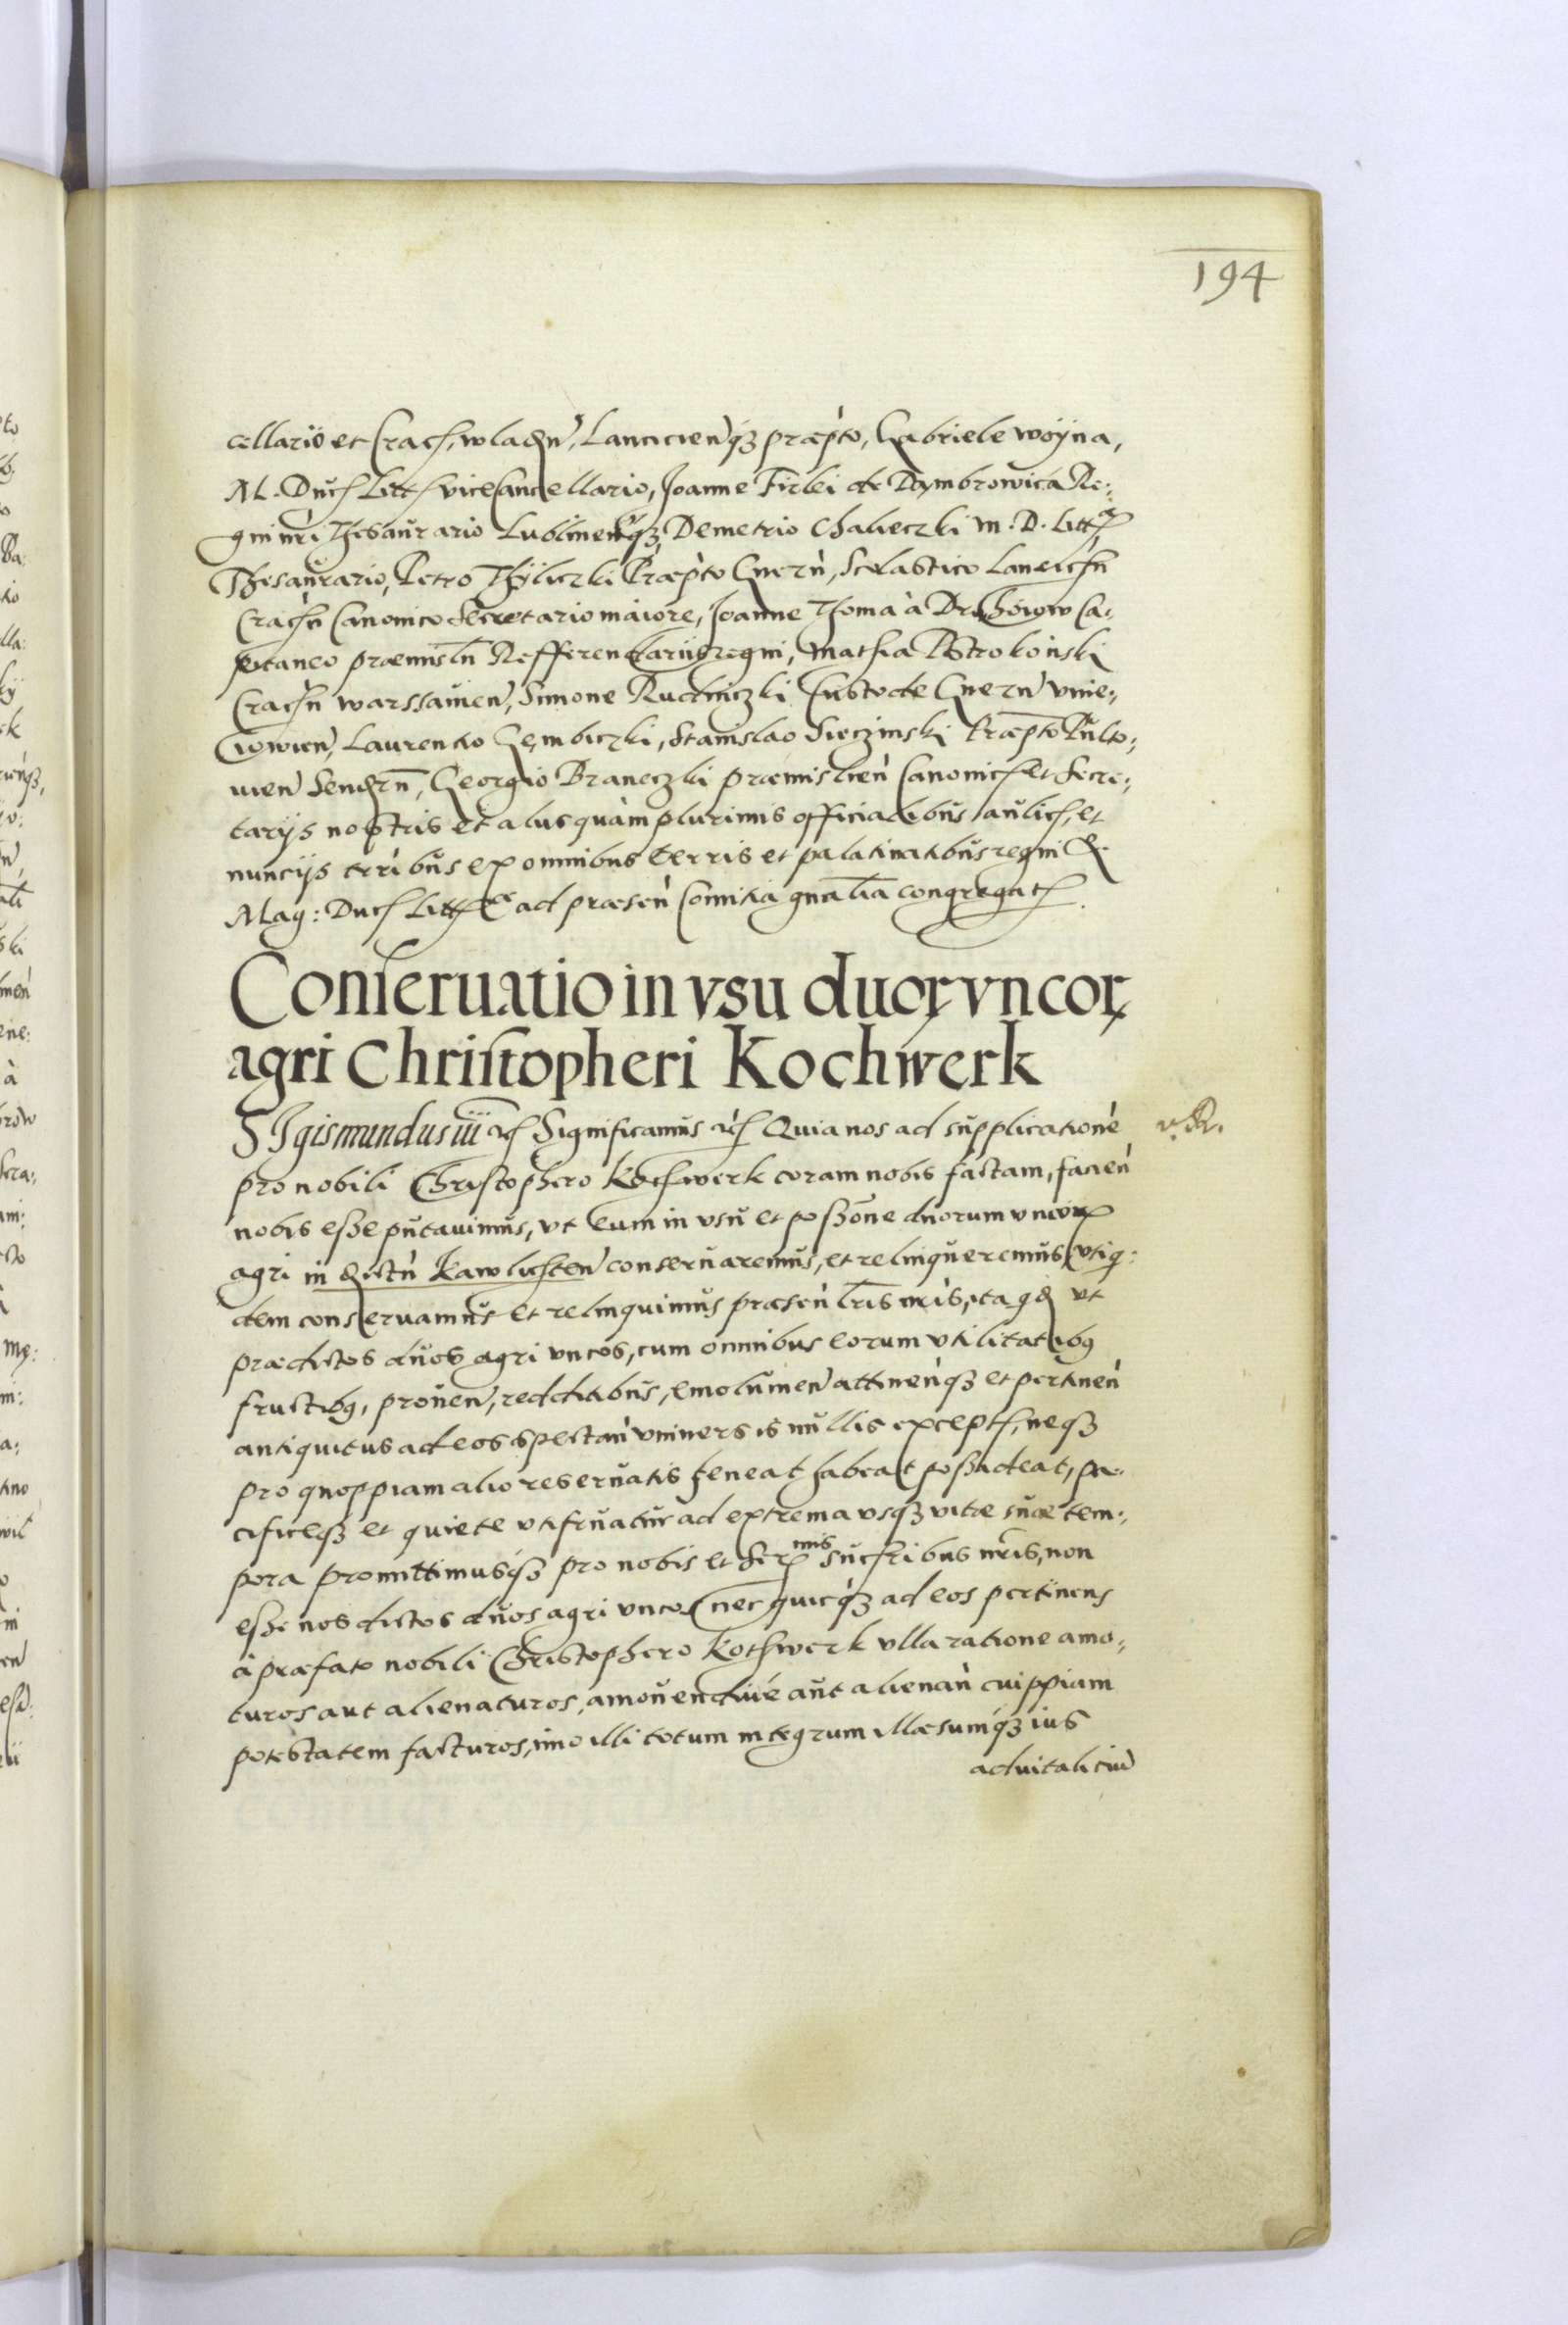 194
cellario et Crac, wladn, Lancicienqȝ præpto, Gabriele woÿna,
M. Duc Litt vicecancellario, Joanne Firlei de Dąmbrowica Re:
gni nri Thesaurario Lublinenqȝ, Demetrio Chaleczki M. D. Litt
Thesaurario, Petro Tÿliczki Præpto Gnern, Scolastico Lancicn
Cracn Canonico Secretario maiore, Joanne Thoma à Drohoiow Ca:
pitaneo præmisln Refferendariis regni, Mathia Pstrokoński
Cracn warssauien, Simone Rudniczki Custode Gnern vnie:
iowien, Laurentio Gembiczki, Stanislao Sieczinski Præpto Pulto:
uien Sendrn, Georgio Braneczki præmislien Canonic et Secre:
tarÿs nostris et aliis quam plurimis officialibus aulic, et
nuncÿs terribus ex omnibus terris et palatinatibus regni &
Mag: Duc Litt ad præsen Comitia gnalia congregat.
Conseruatio in vsu duoꝝ vncoꝝ
agri Christopheri Kochwerk
SIgismundus iii etc Significamus etc Quia nos ad supplicatione
v. R.
pro nobili Christophero Kochwerk coram nobis factam, facien
nobis esse putauimus, vt eum in vsu et possone duorum vncoꝝ
agri in distn Kawlichten conseruaremus, et relinqueremus vtiq:
dem conseruamus et relinquimus præsen lris nris, ita qd vt
prædictos duos agri vncos, cum omnibus eorum vtilitatibꝯ
fructibꝯ, prouen, redditibus, emolumen attinenqȝ et pertinen
antiquitus ad eos spectan vniuersis nullis except, neqȝ
pro quoppiam alio reseruatis teneat habeat possideat, pa:
cificeqȝ et quiete vtifruatur ad extrema vsqȝ vitæ suæ tem:
pora promittimusqȝ pro nobis et Ser^mis sucribus nris, non
esse nos dictos duos agri vncos nec quicqȝ ad eos pertinens
à præfato nobili Christophero Kothwerk vlla ratione amo:
turos aut alienaturos, amouendiue aut alienan cuippiam
potestatem facturos, imo illi totum integrum illæsumqȝ ius
aduitaliciu